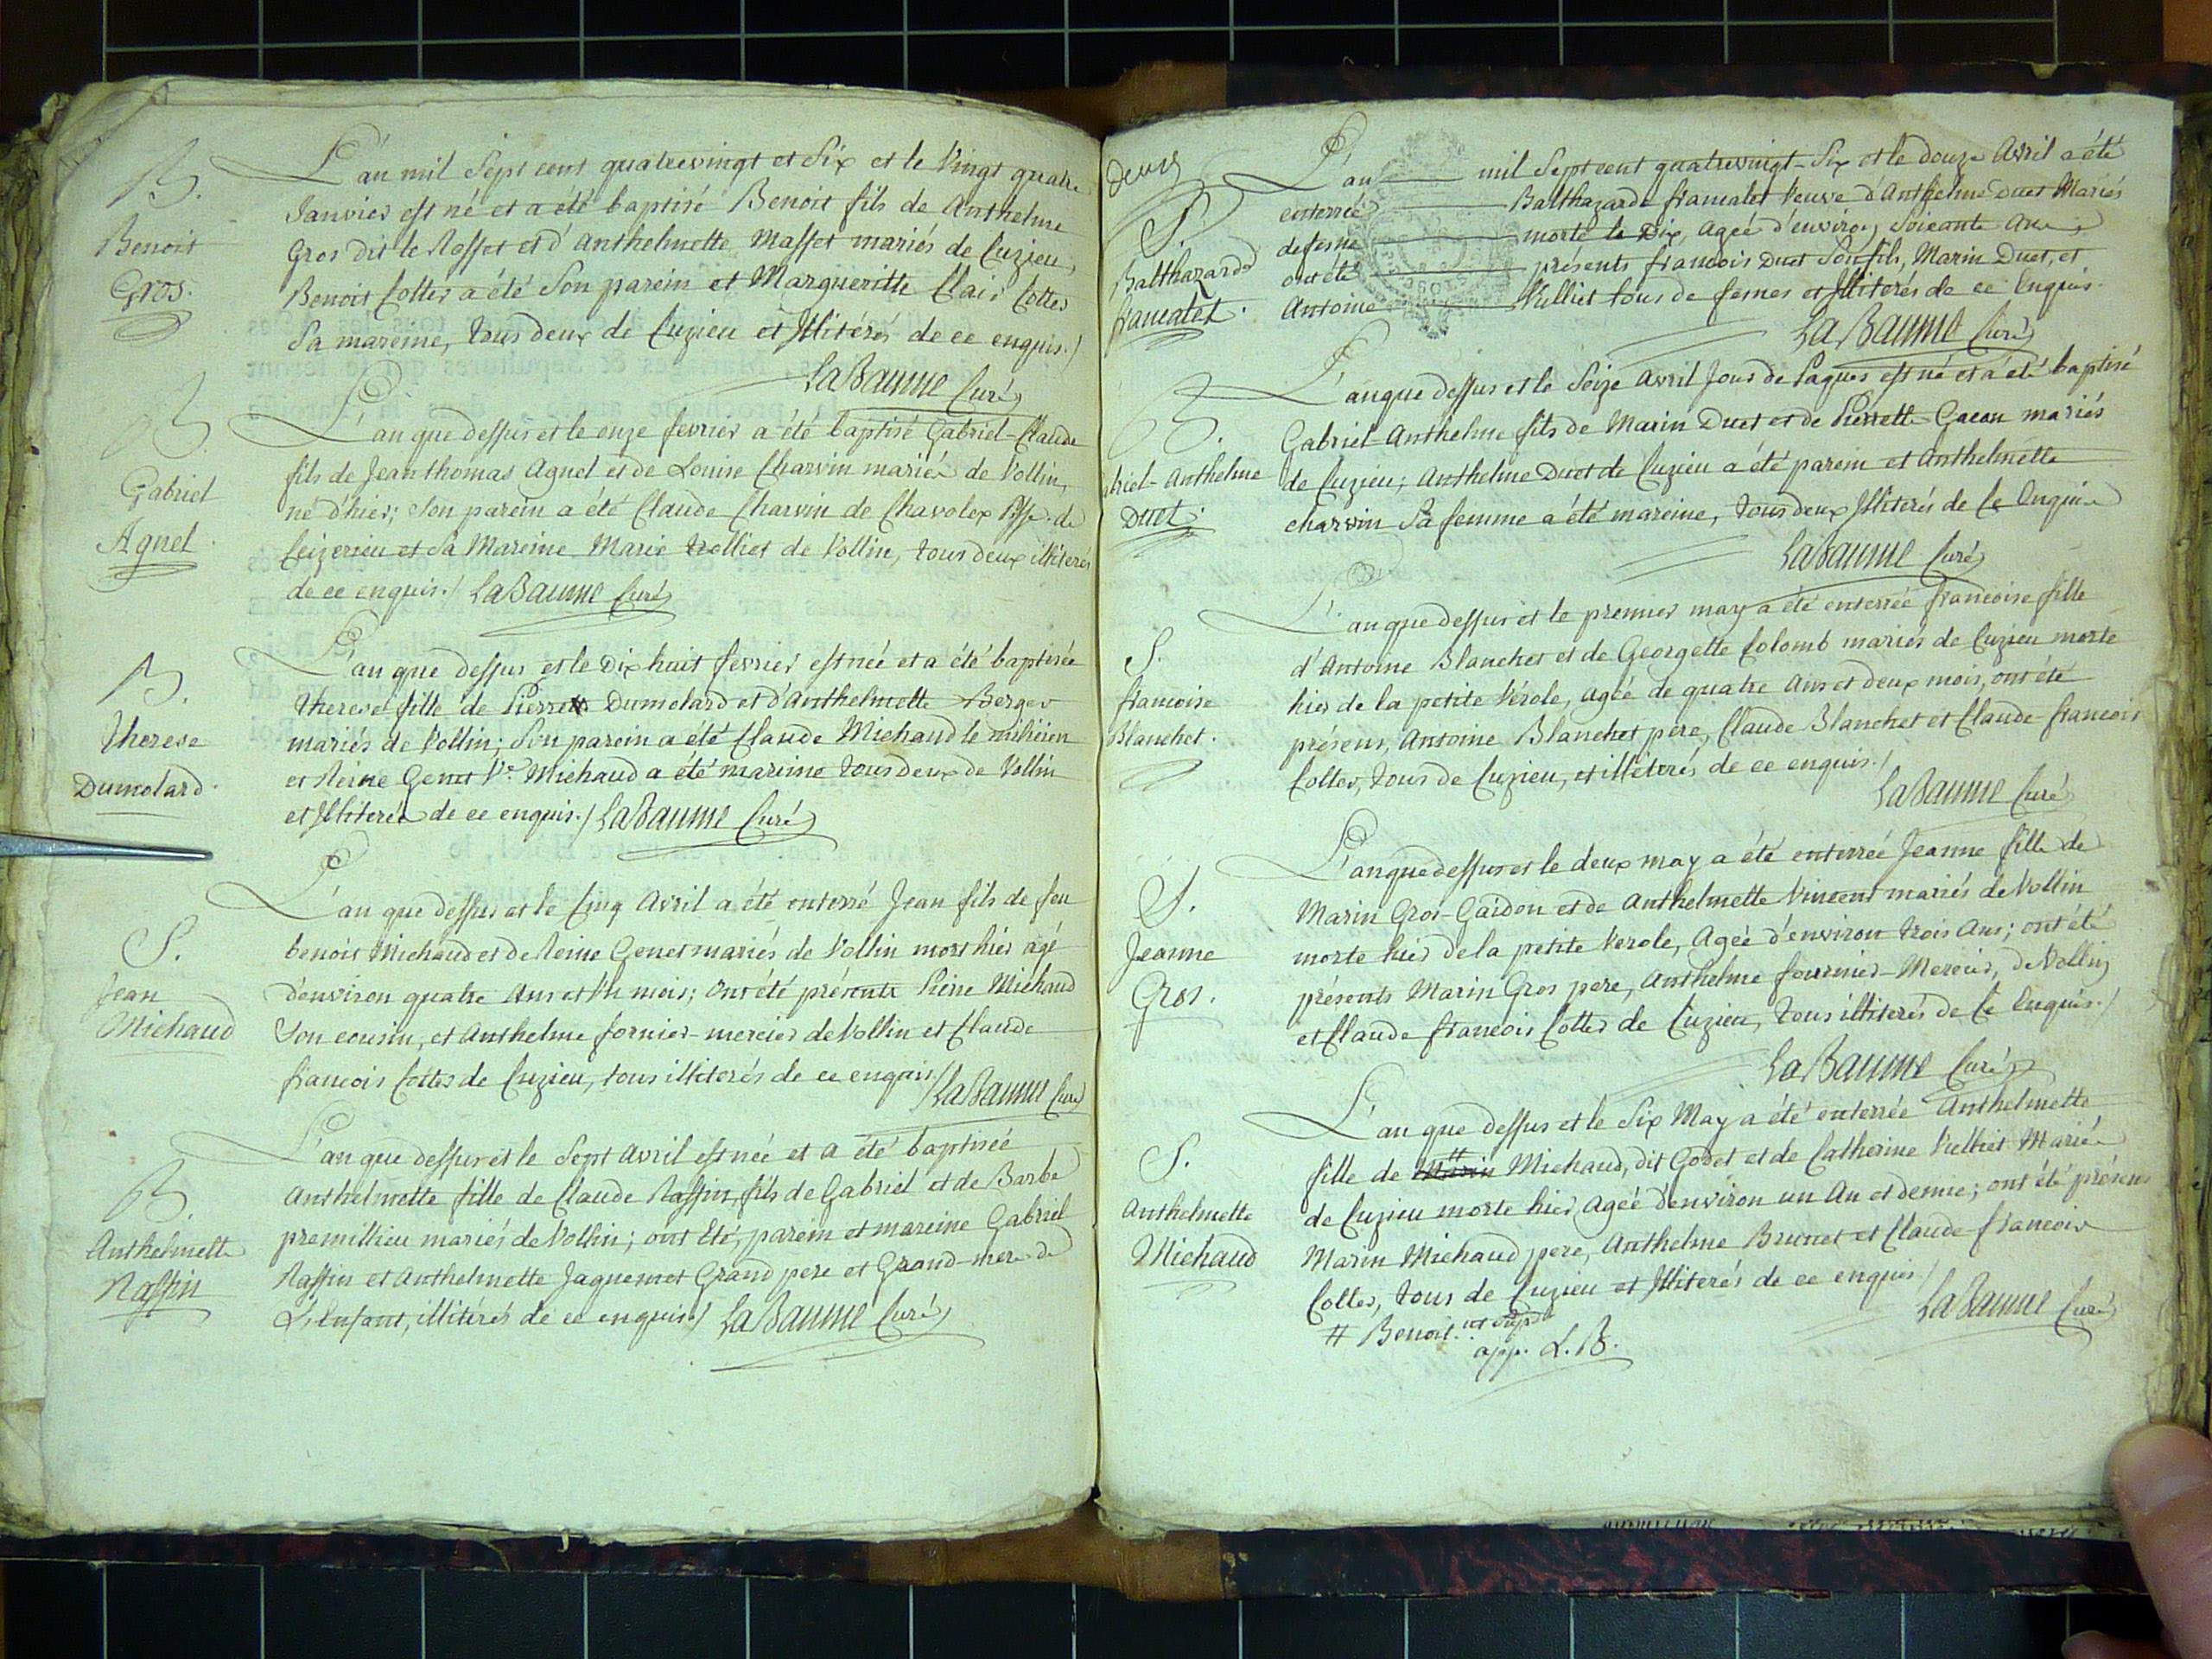 B.
Benoit
Gros.
L'an mil Sept cent quatrevingt et Six et le Vingt quatre
Janvier est né et a été baptisé Benoit fils de Anthelme
Gros dit le Rosset et d'Anthelmette Masset mariés de Cuzieu,
Benoit Cottes a été Son parein et Margueritte Clair Cottes
Sa mareine, tous deux de Cuzieu et Illitérés de ce enquis./
LaBaume Curé
B
Gabriel
Agnel.
L'an que dessus et le onze fevrier a été baptisé Gabriel-Claude
fils de Jean thomas Agnel et de Louise Charvin mariés de Vollin,
né d'hier; Son parein a été Claude Charvin de Chavolex Psse. de
Ceizerieu et Sa Mareine Marie trolliet de Vollin, tous deux illiterés
de ce enquis./ LaBaume Curé
B.
Therese
Dumolard.
L'an que dessus et le Dix huit fevrier est née et a été baptisée
therese fille de Pierre Dumolard et d'Anthelmette Berger
mariés de Vollin; Son parein a été Claude Michaud le milicien
et Reine Genet Ve. Michaud a été mareine tous deux de Vollin
et Illiterés de ce enquis./ LaBaume Curé
S.
Jean
Michaud
L'an que dessus et le Cinq Avril a été enterré Jean fils de feu
benoit Michaud et de Reine Genet mariés de Vollin mort hier agé
d'environ quatre Ans et Un mois; Ont été présents Michaud
Son cousin, et Anthelme fornier-mercier de Vollin et Claude
francois Cottes de Cuzieu, tous illiterés de ce enquis/
LaBaume Curé
B.
Anthelmette
Raffin
L'an que dessus et le Sept Avril est née et a été baptisée
Anthelmette fille de Claude Raffin, fils de Gabriel et de Barbe
premillieu mariés de Vollin; ont Eté, parein et mareine Gabriel
Raffin et Anthelmette Jaquemet Grand pere et Grand-mere de
L'Enfant, illitérés de ce enquis./ LaBaume Curé
deux
S.
Balthazarde
francalet.
L'an mil Sept cent quatrevingt-Six et le douze Avril a été
enterrée Balthazarde francalet Veuve d'Anthelme Duet Mariés
de fesne morte le Dix, Agée d'environ Soixante Ans;
ont été présents francois Duet Son fils, Marin Duet, et
Antoine Vulliet tous de fesnes et Illiterés de ce Enquis.
LaBaume Curé
B.
Gabriel-Anthelme
Duet.
L'an que dessus et le Seize Avril Jour de Paques est né et a été baptisé
Gabriel-Anthelme fils de Marin Duet et de Pierrette Gacon mariés
de Cuzieu; Anthelme Duet de Cuzieu a été parein et Anthelmette
charvin Sa femme a été mareine, tous deux Illiterés de Ce Enquis
LaBaume Curé
S.
francoise
Blanchet.
L'an que dessus et le premier may a été enterrée francoise fille
d'Antoine Blanchet et de Georgette Colomb mariés de Cuzieu morte
hier de la petite Vérole, agée de quatre Ans et deux mois, ont été
présens, Antoine Blanchet pere, Claude Blanchet et Claude-francois
Cottes, tous de Cuzieu, et illéterés de ce enquis./
LaBaume Curé
S.
Jeanne
Gros.
L'an que dessus et le deux may a été enterrée Jeanne fille de
Marin Gros-Gaidon et de Anthelmette Vincent mariés de Vollin
morte hier de la petite Verole, Agée d'environ trois Ans; ont été
présents Marin Gros pere, Anthelme fournier-Mercier, de Vollin
et Claude francois Cottes de Cuzieu, tous illiterés de Ce Enquis./
LaBaume Curé
S.
Anthelmette
Michaud
L'an que dessus et le Six May a été enterrée Anthelmette
fille de Marin # Michaud, dit Godet et de Catherine Vulliet Mariés
de Cuzieu morte hier, Agée d'environ un An et demie; ont été présens
Marin Michaud pere, Anthelme Brunet et Claude-francois
Cottes, tous de Cuzieu et Illiterés de ce enquis./
LaBaume Curé
# Benoit.
app. L.B.